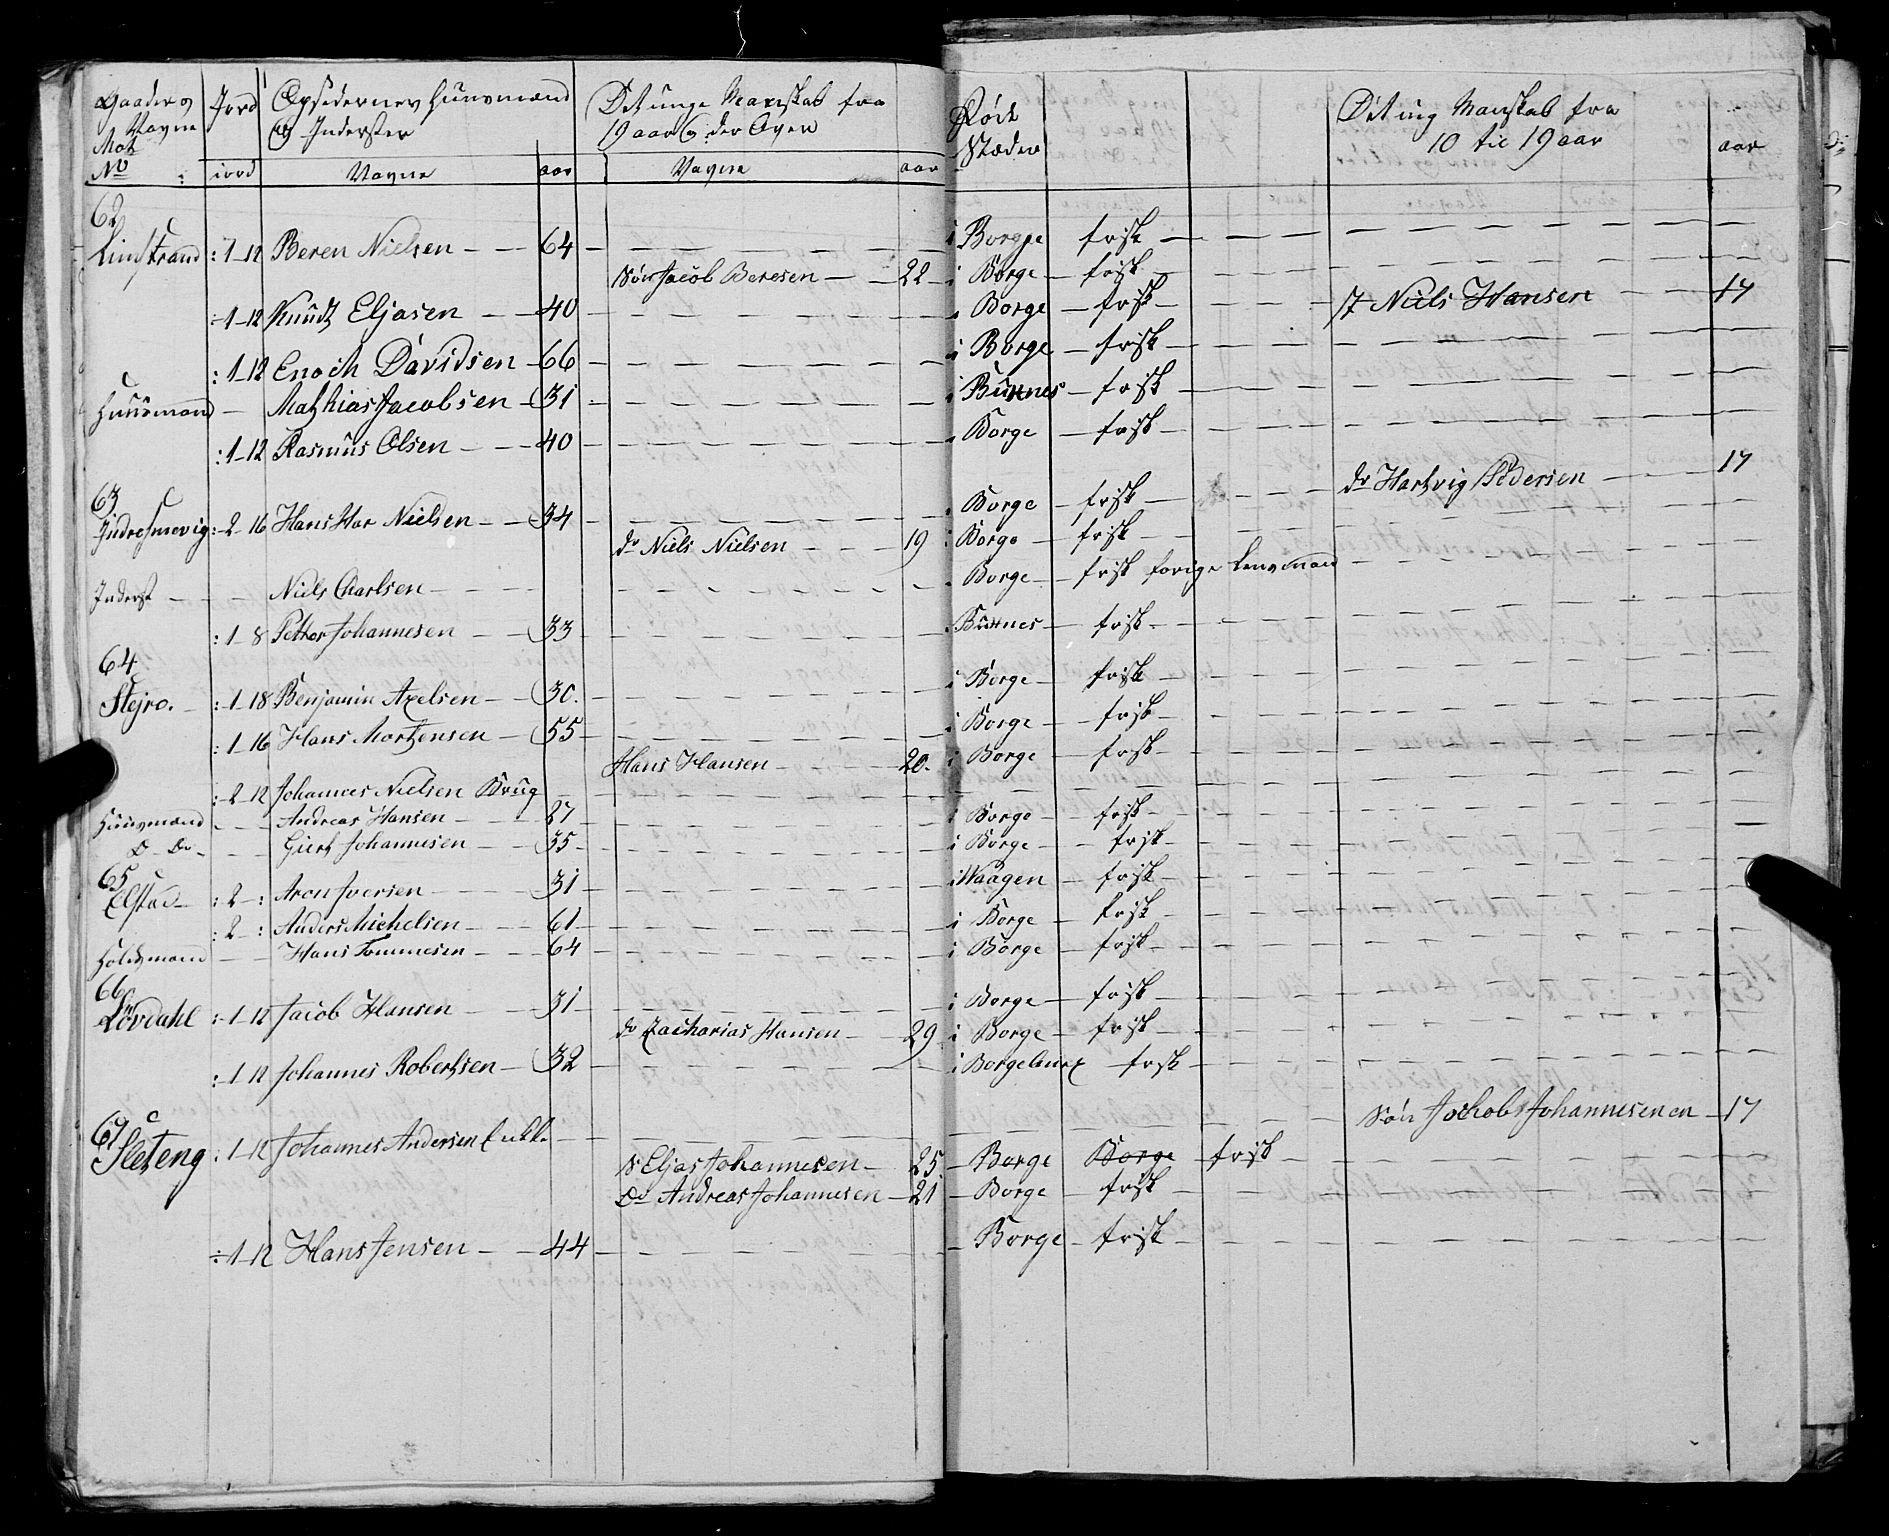 Gaarder og Navne Mat No : | Jord iord | Opsidernes Huusmænd og Inderster Navne | aar | Det unge Manskab fra 19 aar og der Over Navne | aar | Födt Stæder | Det ung Manskab fra 10 til 19 aar | aar
62
Limstrand :1-12 Beren Nielsen — 64 — i Borge frisk —
Sön Jacob Beresen — 22 — i Borge — frisk —
:1-12 Knudt Eljasen — 40 — i Borge — frisk — St Niels Hansen — 17
:1-12 Enoch Davidsen — 66 — i Borge — frisk —
Huusmand — Mathias Jacobsen — 31 — i Buxnes — frisk —
:1-12 Rasmus Olsen — 40 — i Borge — frisk —
do Hartvig Pedersen — 17
63
Indresmevig :2 16 Hans Har Nielsen — 34 — i Borge — frisk —
do Niels Nielsen — 19 i Borge — frisk —
Inderst — Niels Charlsen — Borge — frisk forige Lensmand —
:1-8 Petter Johannesen — 33 — Buxnes — frisk —
64
Stejro. :1-18 Benjamin Axelsen — 30. — i Borge — frisk —
:1-16 Hans Mortensen — 55 — i Borge — frisk —
Hans Hansen — 20. i Borge — frisk —
:2-12 Johannes Nielsen Krug —
Huusmand — Andreas Hansen — 27 — i Borge — frisk —
D Do — Giert Johannesen — 35 — i Borge — frisk —
65
Elstad :2-: Aron Iversen — 31 — i Waagen — frisk —
:2-: Anders Michelsen — 61 — i Borge — frisk —
Holdsmand — Hans Tommesen — 64 — i Borge — frisk —
66
Lövdahl :1-12 Jacob Hansen — 31 — i Borge — frisk —
do Zacharias Hansen — 29 i Borge — frisk —
:1-12 Johannes Robertsen — 32 — i Borge — frisk —
Sön Jochob Johannesen en — 17
67
Sleteng :1-12 Johannes Andersen Enke —
S Eljas Johannesen — 25 — Borge Borge frisk —
Do Andreas Johannesen — 21 — Borge — frisk —
:1-12 Hans Jensen — 44 — Borge — frisk —